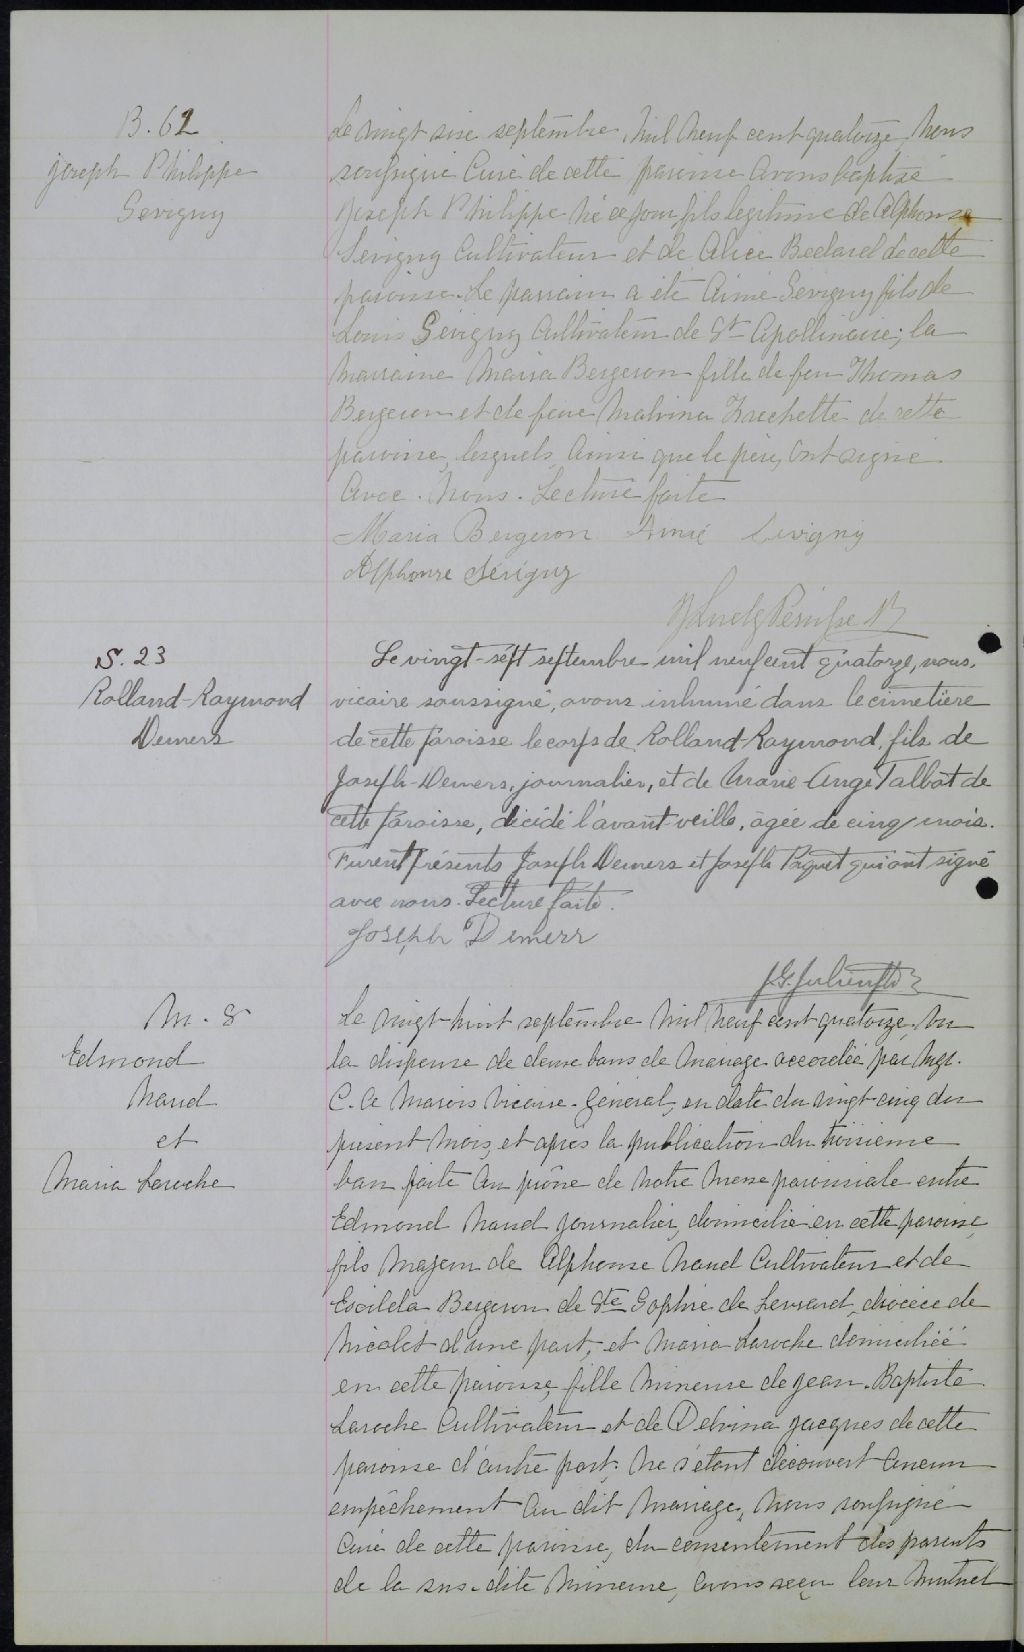 B. 62
Joseph Philippe
Sevigny
Le vingt six septembre, mil neuf cent quatorze nous
soussigné Curé de cette paroisse avons baptisé
Joseph Philippe né ce jour, fils légitime de Alphonse
Sevigny Cultivateur et de Alice Bedard de cette
paroisse. Le parrain a été Aimé Sevigny fils de
Louis Sevigny Cultivateur de St Apollinaire; la
marraine Maria Bergeron fille de feu Thomas
Bergeron et de feue Malvina Frechette de cette
paroisse, lesquels, ainsi que le père, ont signé
avec nous. Lecture faite
Maria Bergeron Aimé Sevigny
Alphonse Sévigny
S. 23
Rolland-Raymond
Demers
Le vingt-sept septembre mil neuf cent quatorze, nous,
vicaire soussigné, avons inhumé dans le cimetière
de cette paroisse le corps de Rolland-Raymond, fils de
Joseph-Demers, journalier, et de Marie-Ange Talbot de
cette paroisse, décédé l'avant-veille, âgée de cinq mois.
Furent présents Joseph Demers et Joseph Paquet qui ont signé
avec nous. Lecture faite.
Joseph Demers
M. 8
Edmond
Naud
et
Maria Laroche
Le vingt-huit septembre mil neuf cent quatorze. Vu
la dispense de deux bans de mariage accordée par Mgr.
C. A Marois Vicaire-Général, en date du vingt-cinq du
présent mois, et après la publication du troisième
ban faite au prône de notre messe paroissiale entre
Edmond Naud journalier, domicilié en cette paroisse,
fils majeur de Alphonse Naud Cultivateur et de
Exilda Bergeron de Ste Sophie de Levrard, diocèse de
Nicolet d'une part; et Maria Laroche domiciliée
en cette paroisse, fille mineure de Jean-Baptiste
Laroche Cultivateur et de Delvina Jacques de cette
paroisse d'autre part; ne s'étant découvert aucun
empêchement au dit mariage, nous soussigné
Curé de cette paroisse, du consentement des parents
de la sus-dite mineure, avons reçu leur mutuel